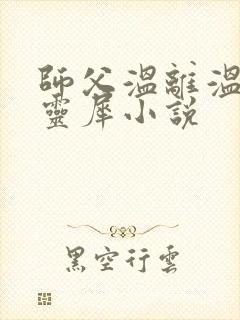 師父溫離溫
靈犀小說
黑空行雲